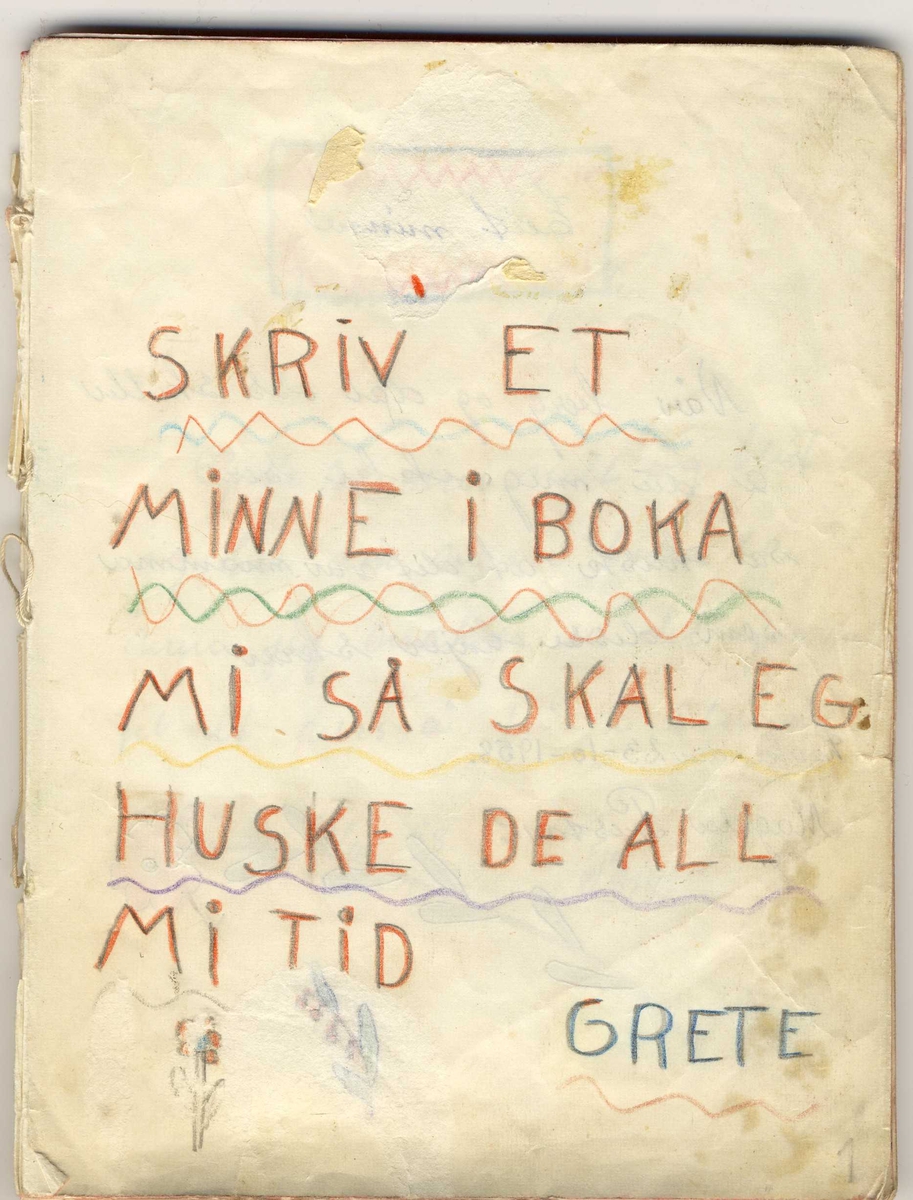 SKRIV ET
MINNE I BOKA
MI SÅ SKAL EG
HUSKE DE ALL
MI TID
GRETE
1